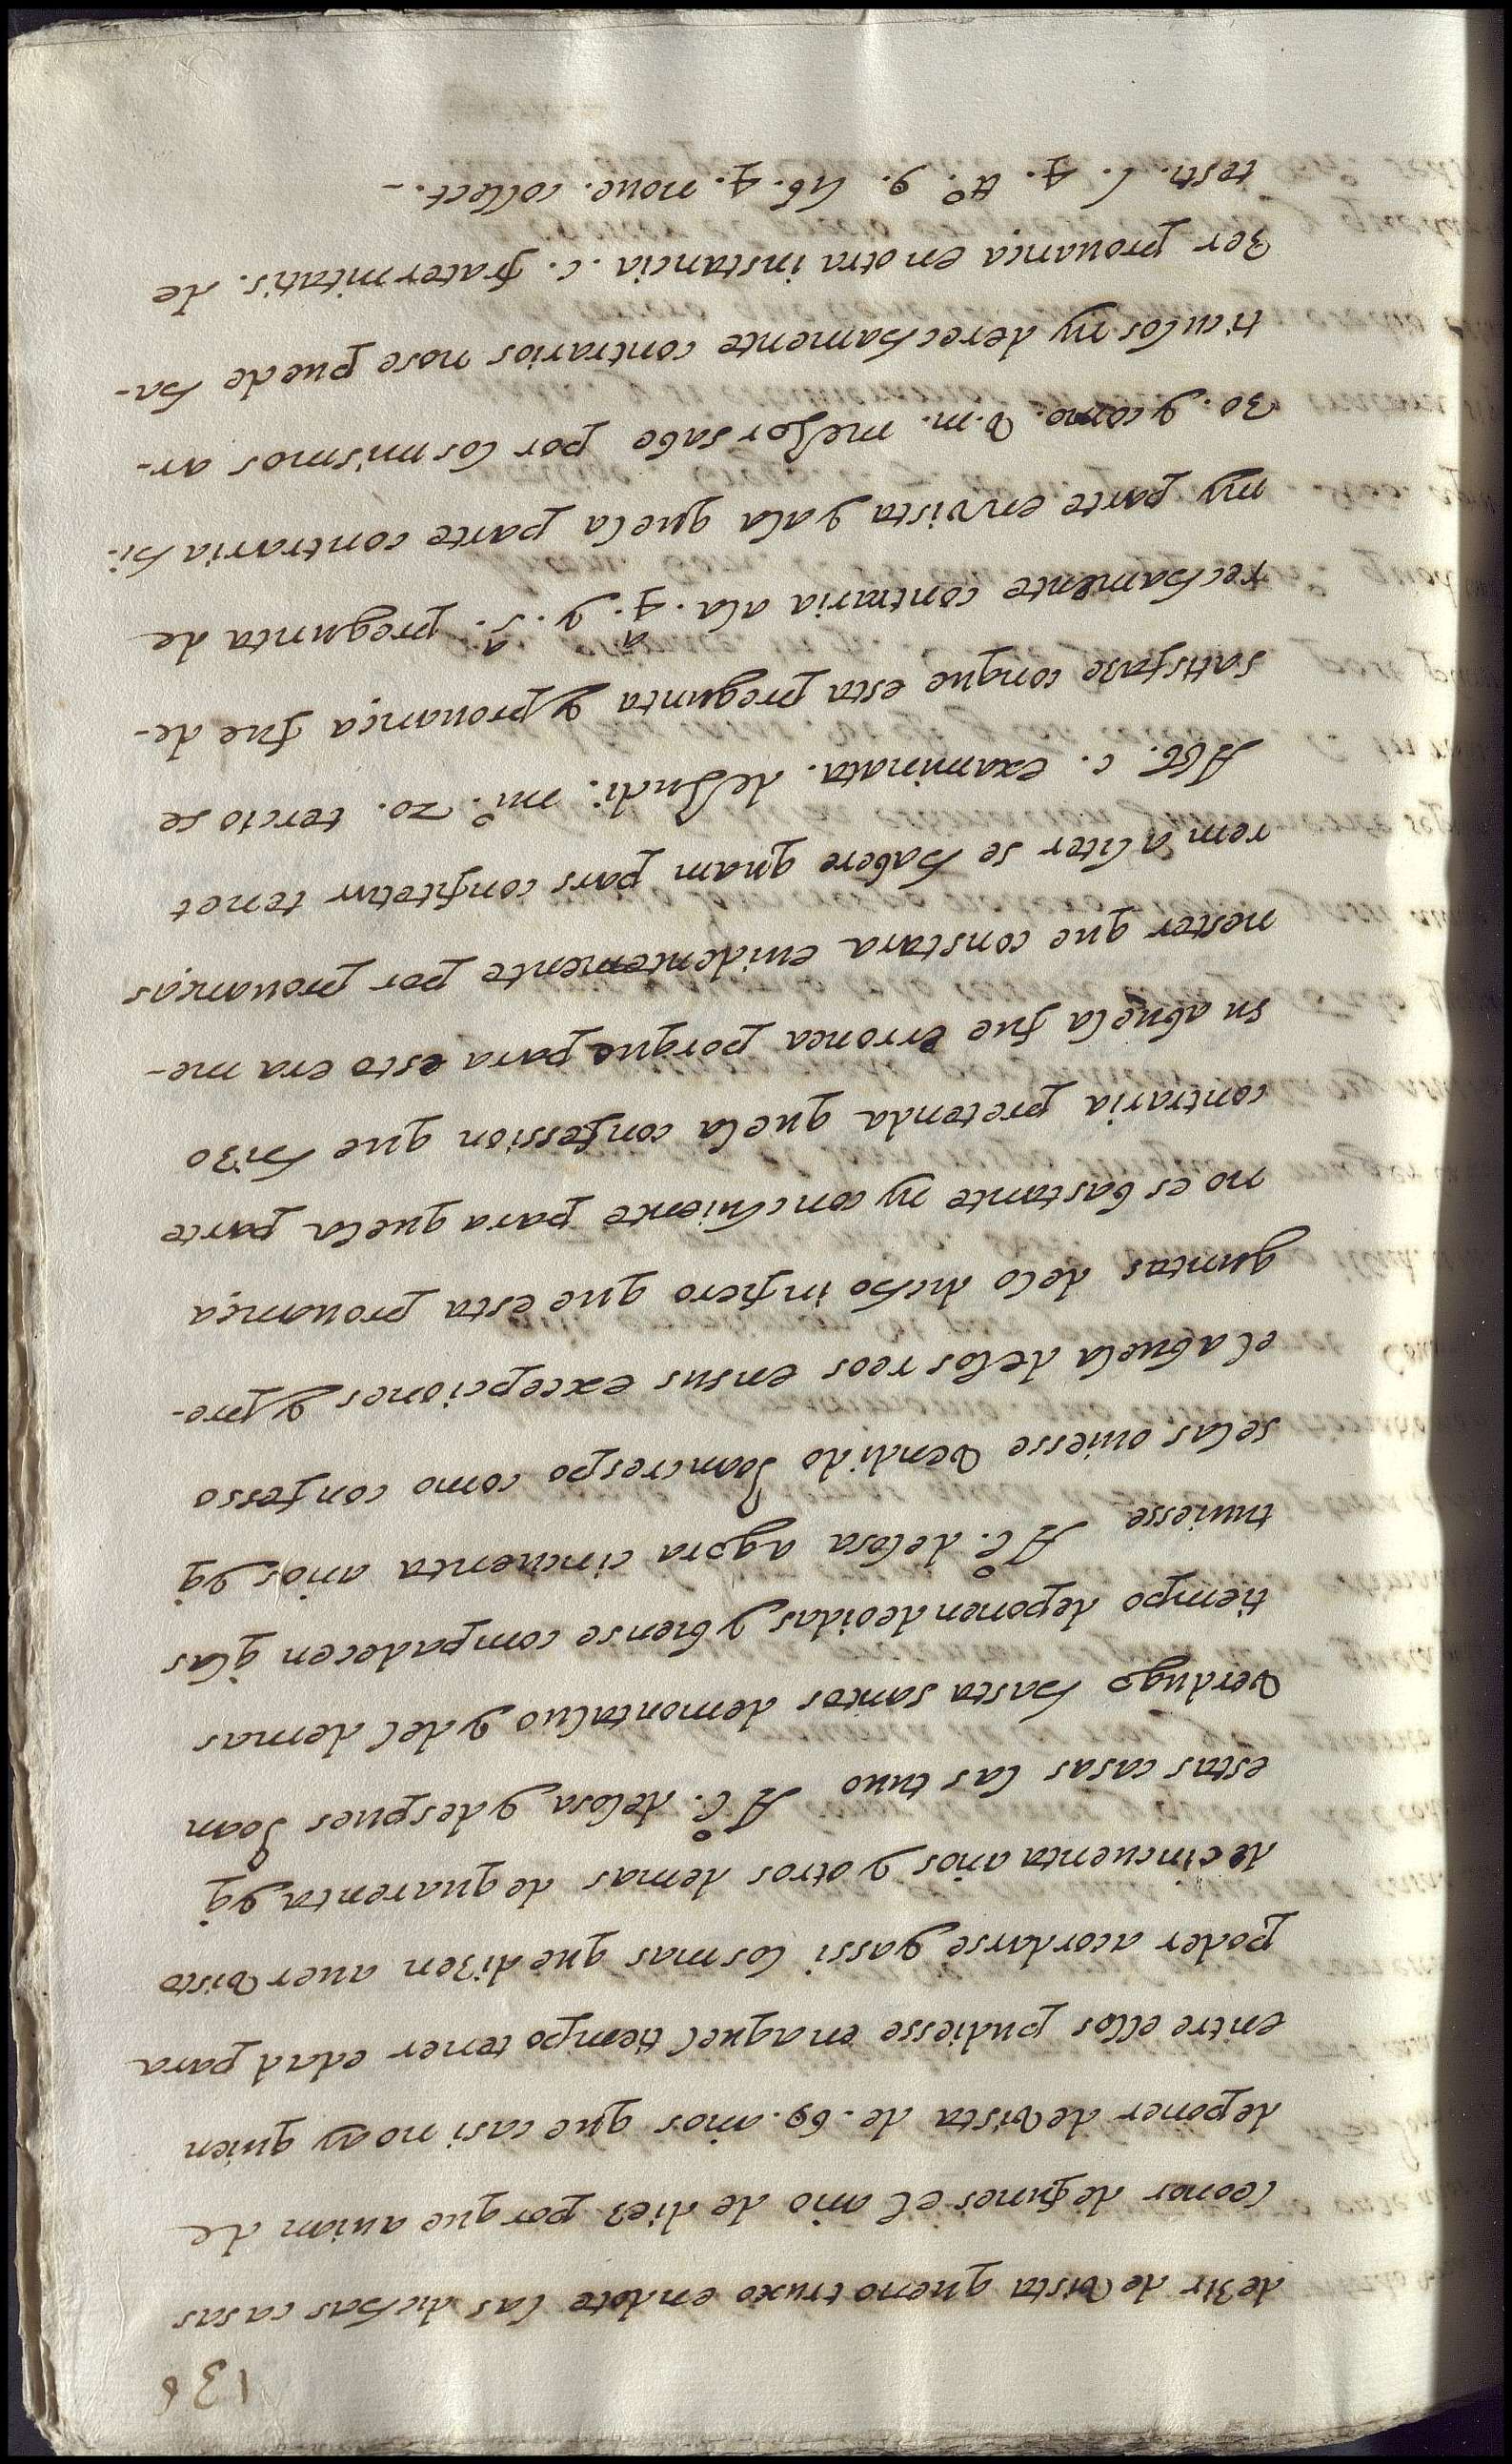 136
dezir de vista que no truxo en dote las dichas casas
leonor de funes el año de diez porque auian de
deponer de vista de .69. años que casi no ay quien
entre ellos pudiesse en aquel tiempo tener edad para
poder acordarse y assi los mas que dizen auer visto
de cincuenta años y otros de mas de quarenta y q̃
estas casas las tuuo Al.º de losa y despues Joan
verdugo hasta santos de montaluo y del demas
tiempo deponen de oidas y bien se compadecen q̃ las
tuuiesse Al.º de losa agora cincuenta años y q̃
se las ouiesse vendido Joan crespo como confesso
el abuela de los reos en sus excepciones y pre-
guntas de lo dicho infiero que esta prouança
no es bastante ny concluiente para que la parte
contraria pretenda que la confession que hizo
su abuela fue erronea porque para esto era me-
nester que constara euidentemente por prouanças
rem aliter se habere quam pars confitetur tenet
Abb. c. examinata. de Judi. nu.º 20. tercio se
satisfaze con que esta pregunta y prouança fue de-
rechamente contraria a la .4.ª y .5.ª pregunta de
my parte en vista y a la que la parte contraria hi-
zo. y como. v.m. mejor sabe por los mismos ar-
ticulos ny derechamente contrarios no se puede ha-
zer prouança en otra instancia. c. fraternitatis. de
testi. l. 4. tt.º 9. lib. 4. noue. collect.-